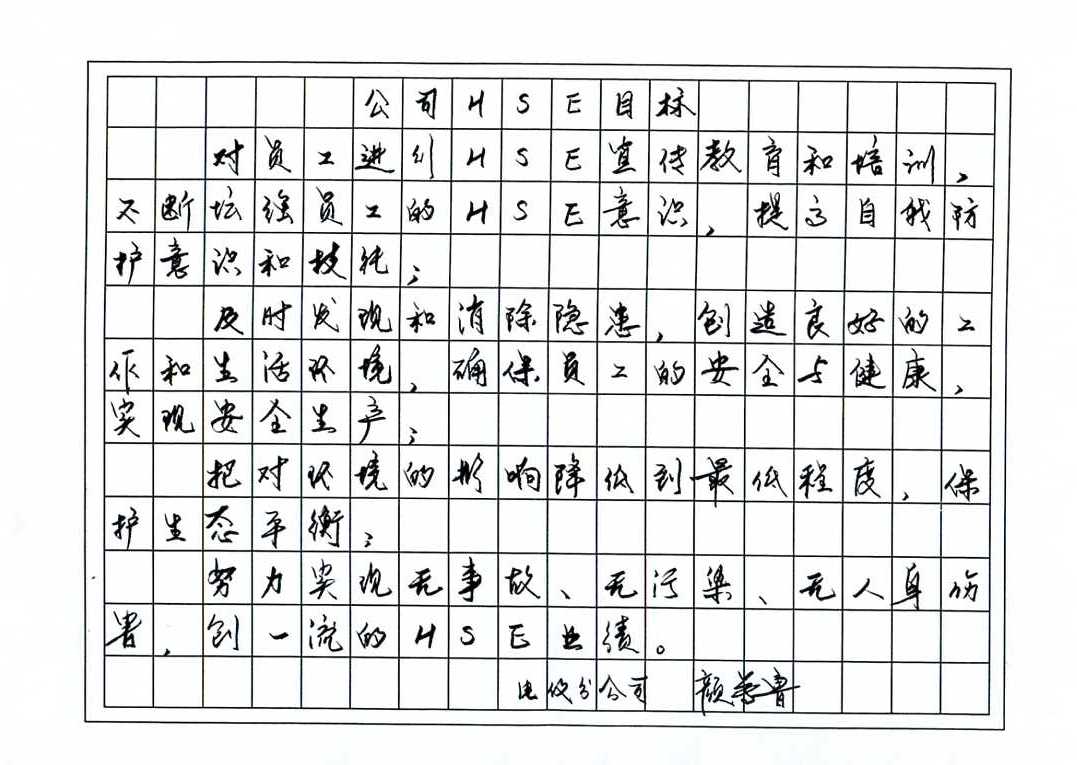 公司HSE目标
对员工进行HSE宣传教育和培训，
不断坛强员工的HSE意识，提高自我防
护意识和技能；
及时发现和消除隐患，创造良好的工
作和生活环境，确保员工的安全与健康，
实现安全生产；
把对环境的影响降低到最低程度，保
护生态平衡；
努力实现无事故、无污染、无人身伤
害，创一流的HSE业绩。
分公司 颜